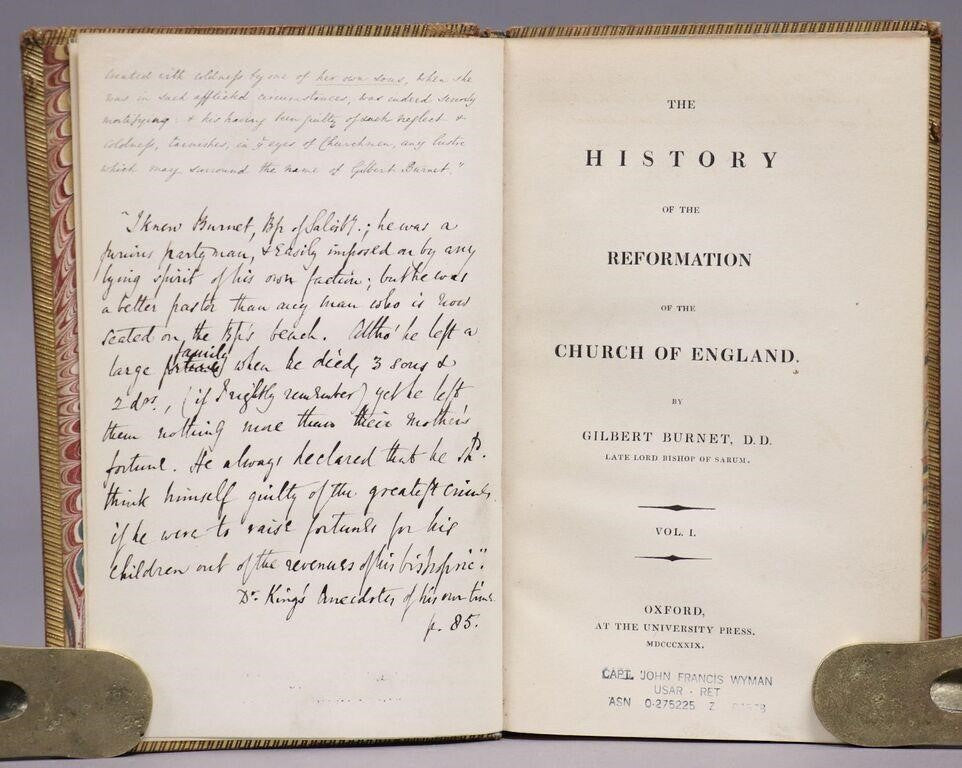 treated with coldness by one of her own sons, when she
was in such afflicted circumstances, was indeed severely
mortifying: & his having been guilty of such neglect &
coldness, tarnishes, in ye eyes of Churchmen, any lustre
which may surround the name of Gilbert Burnet."
"I knew Burnet, Bp of Salisby.; he was a
furious party man, & easily imposed on by any
lying spirit of his own faction; but he was
a better pastor than any man who is now
seated on the Bps bench. Altho' he left a
large family when he died, 3 sons &
2 drs., (if I rightly remember) yet he left
them nothing more than their mother's
fortune. He always declared that he shd.
think himself guilty of the greatest crimes
if he were to raise fortunes for his
children out of the revenues of his bishopric."
Dr. King's Anecdotes of his own time
p. 85.
THE
HISTORY
OF THE
REFORMATION
OF THE
CHURCH OF ENGLAND.
BY
GILBERT BURNET, D.D.
LATE LORD BISHOP OF SARUM.
VOL. I.
OXFORD,
AT THE UNIVERSITY PRESS.
MDCCCXXIX.
CAPT. JOHN FRANCIS WYMAN
USAR - RET
ASN 0-275225 Z